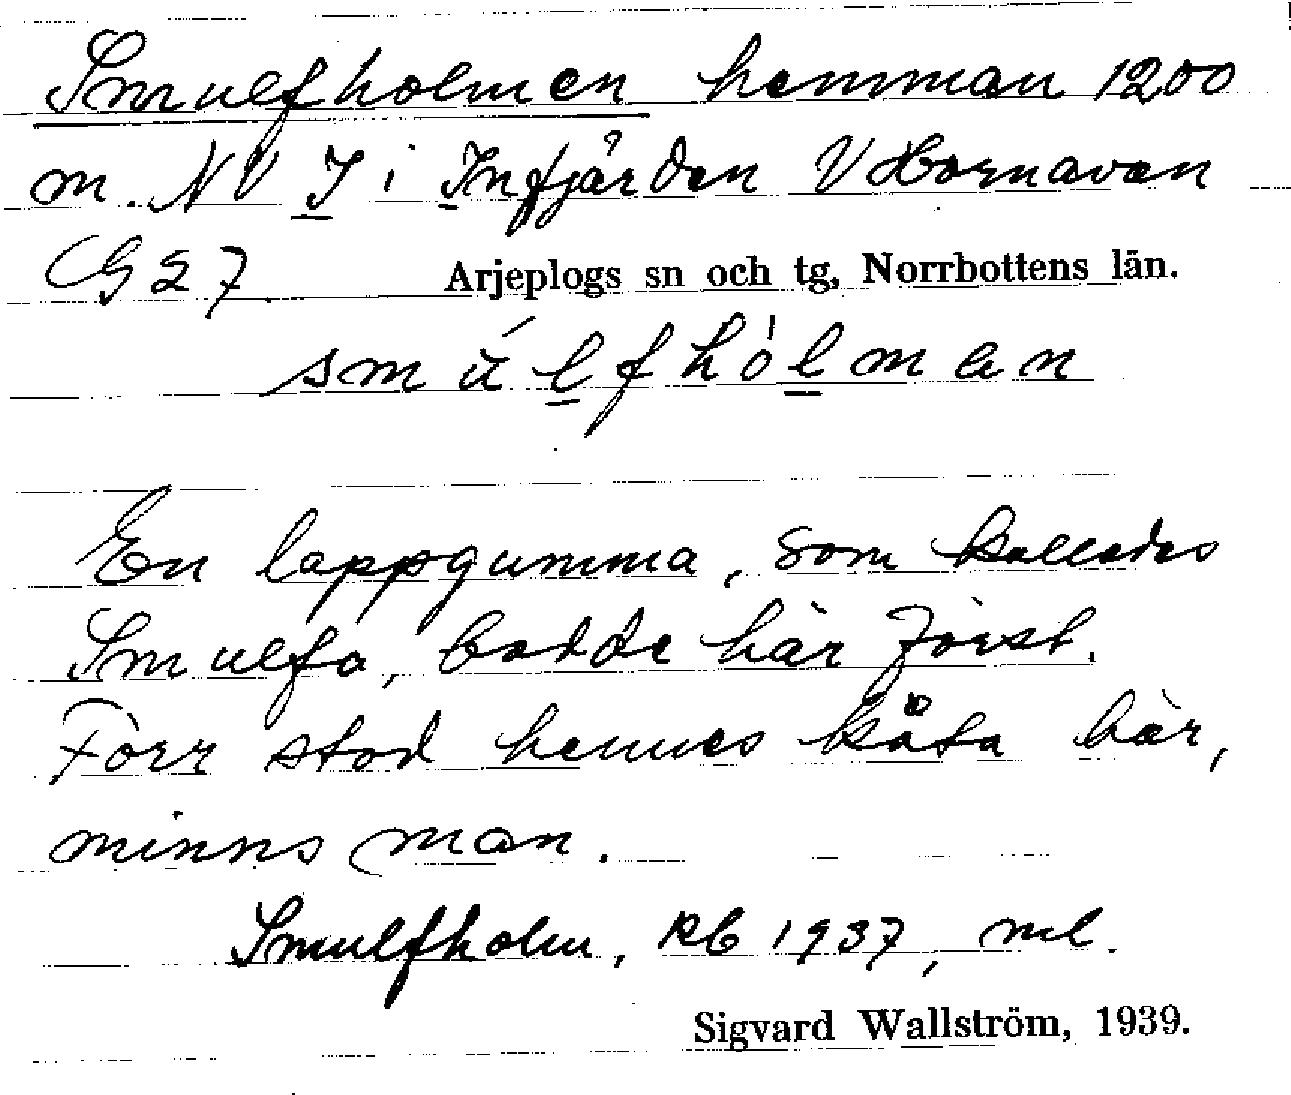 Smulfholmen hemman 1200
m. NV I i Infjärden V Hornavan
G 27 Arjeplogs sn och tg, Norrbottens län.
smúlfhòlman
En lappgumma, som kallades
Smulfa, bodde här först.
Förr stod hennes kåta här,
minns man.
Smulfholm, Rb 1937, ml.
Sigvard Wallström, 1939.